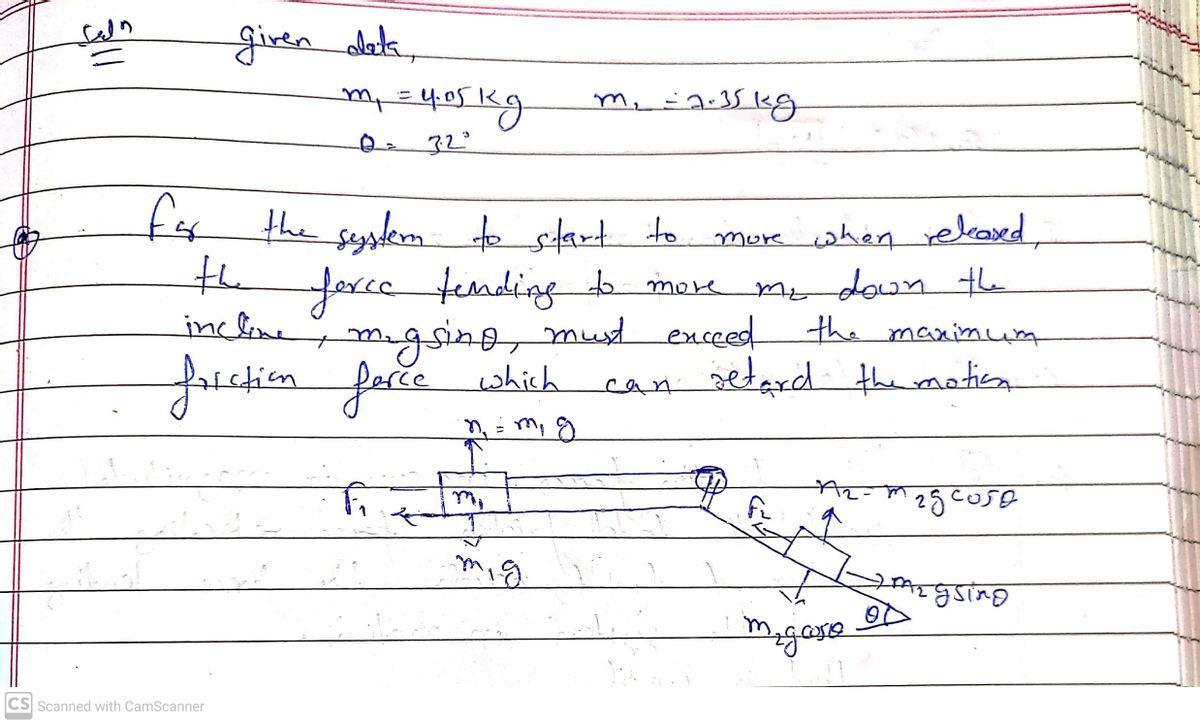 Soln
given data,
m₁ = 4.05 kg m₂ = 2.35 kg
θ = 32°
For the system to start to move when released,
the force tending to move m₂ down the
incline, m₂g sinθ, must exceed the maximum
friction force which can retard the motion
n₁ = m₁g
F₁ m₁
n₂ = m₂g cosθ
F₂
m₁g
m₂g sinθ
θ
m₂g cosθ
CS Scanned with CamScanner